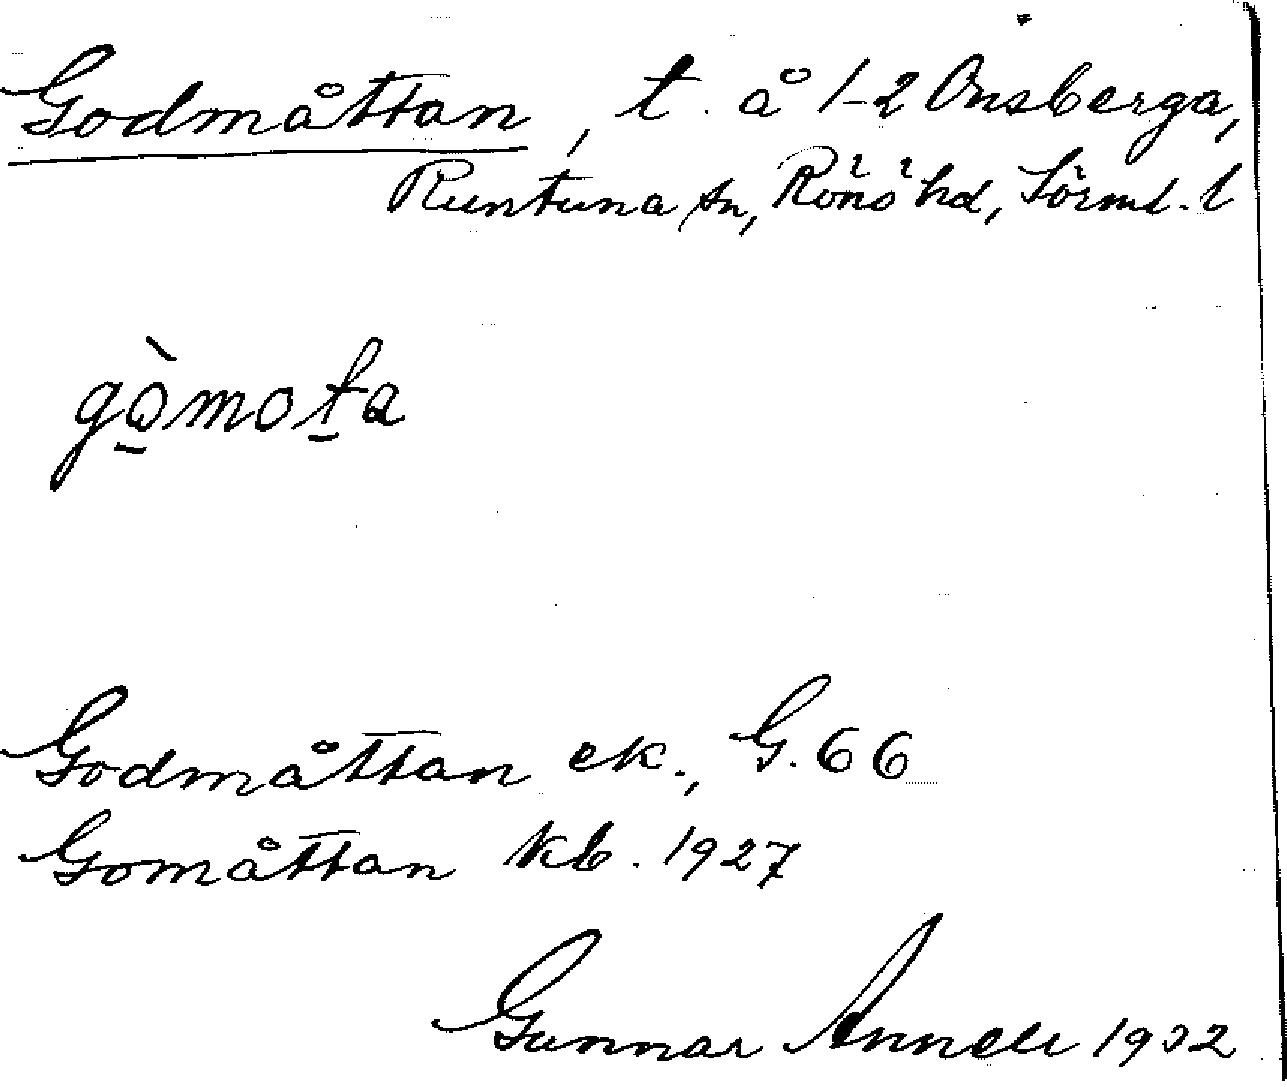 Godmåttan, t. å 1-2 Onsberga,
Runtuna sn, Rönö hd, Sörml. l
gòmota
Godmåttan ek., G. 66
Gomåttan kb. 1927
Gunnar Annell 1932